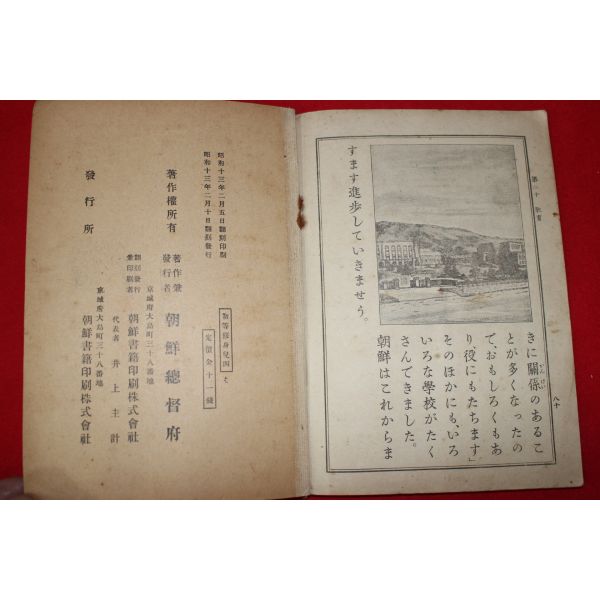 第二十 教育
八十
きに關係のあるこ
とが多くなったの
で、おもしろくもあ
り、役にもたちます」
そのほかにも、いろ
いろな學校がたく
さんできました。
朝鮮はこれからま
すます進歩していきませう。
昭和十三年二月五日飜刻印刷
昭和十三年二月十日飜刻發行
定價金十一錢
著作權所有
著作兼
發行者
朝鮮總督府
京城府大島町三十八番地
飜刻發行
兼印刷者
朝鮮書籍印刷株式會社
代表者 井上主計
京城府大島町三十八番地
發行所
朝鮮書籍印刷株式會社